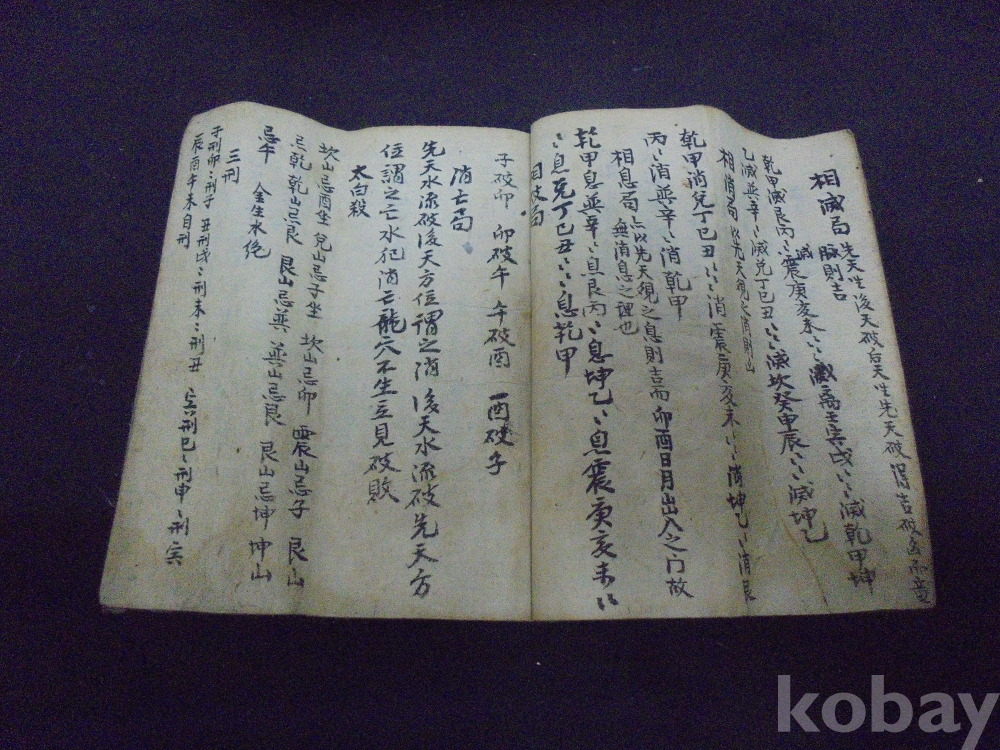 相滅局 先天生後天破 后天生先天破 得吉破
脈則吉
乾甲滅艮丙〻滅震庚亥未〻〻滅离壬寅戌〻〻滅乾甲坤
乙滅巽辛〻滅兑丁巳丑〻〻滅坎癸申辰〻〻滅坤乙
相消局 以先天視之消則凶
乾甲消兑丁巳丑〻〻消震庚亥未〻〻消坤乙〻消艮
丙〻消巽辛〻消乾甲
相息局 以先天視之息則吉而卯酉日月出入之门故
無消息之理也
乾甲息巽辛〻息艮丙〻息坤乙〻息震庚亥未〻
〻息兑丁巳丑〻〻息乾甲
相破局
子破卯 卯破午 午破酉 酉破子
消亡局
先天水流破後天方位謂之消後天水流破先天方
位謂之亡水犯消亡龍穴不生立見破敗
太白殺
坎山忌酉坐 兑山忌子坐 坎山忌卯 震山忌子 艮山
忌乾 乾山忌艮 艮山忌巽 巽山忌艮 艮山忌坤 坤山
忌午 金生水絶
三刑
子刑卯〻刑子 丑刑戌〻刑未〻刑丑 寅刑巳〻刑申〻刑寅
辰酉午亥自刑
kobay